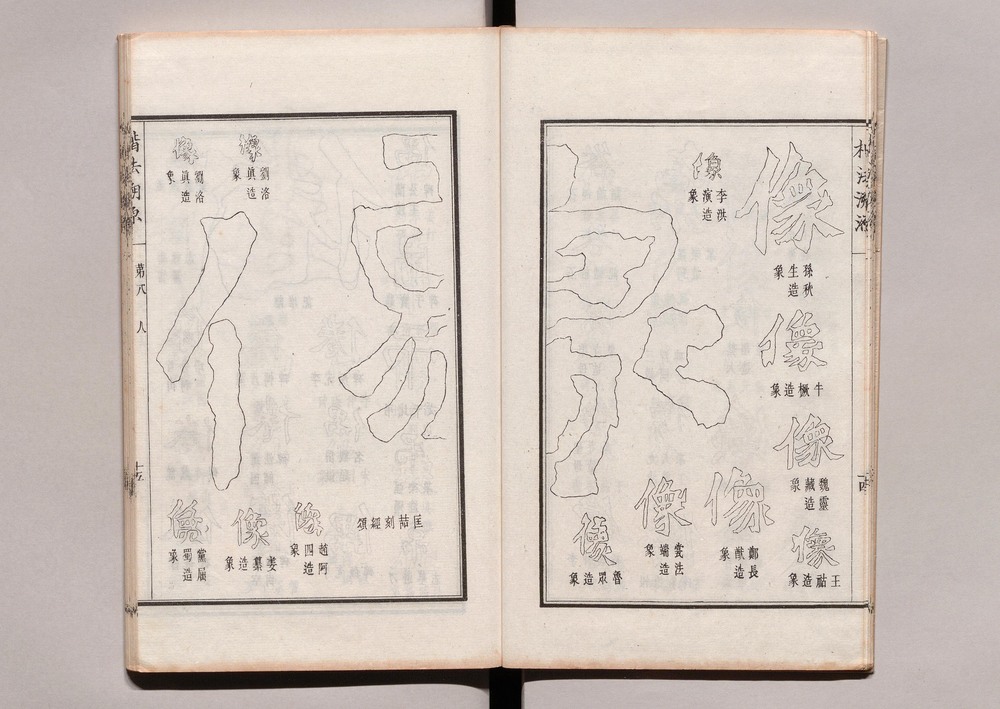 楷法溯源
像
孫秋生造象
像
牛橛造象
像
魏靈藏造象
像
王祜造象
像
李洪演造象
像
鄭長猷造象
像
法端造象
像
魯眾造象
像
匡喆刻經頌
像
劉洛眞造象
像
趙阿四造象
像
姜纂造象
像
劉洛眞造象
像
黨屈蜀造象
楷法溯源
第八 人
十五